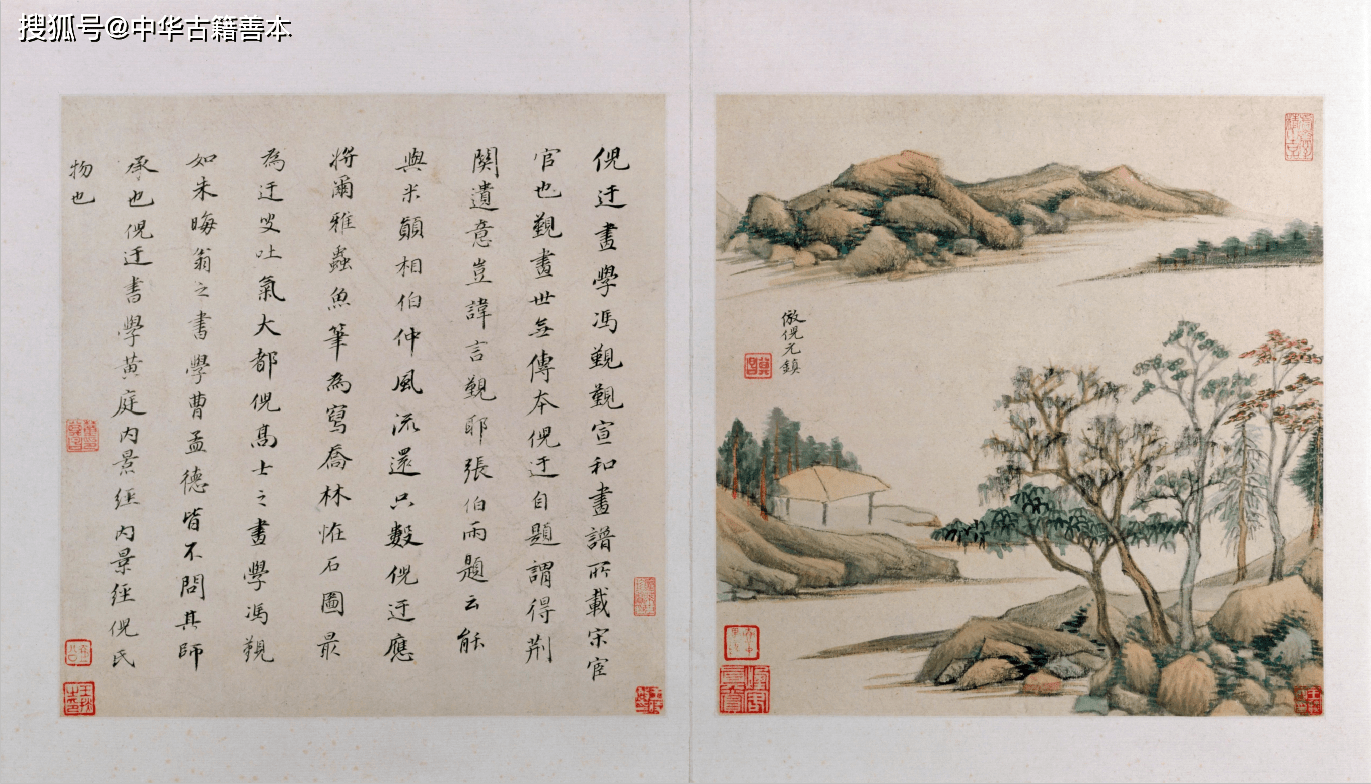 搜狐号@中华古籍善本
倣倪元鎮
倪迂畫學馮覲覲宣和畫譜所載宋宦
官也覲畫世無傳本倪迂自題謂得荆
關遺意豈諱言覲耶張伯雨題云能
與米顛相伯仲風流還只數倪迂應
將爾雅蟲魚筆為寫喬林恠石圖最
為迂叟吐氣大都倪髙士之畫學馮覲
如朱晦翁之書學曹孟德皆不問其師
承也倪迂書學黄庭内景經内景經倪氏
物也